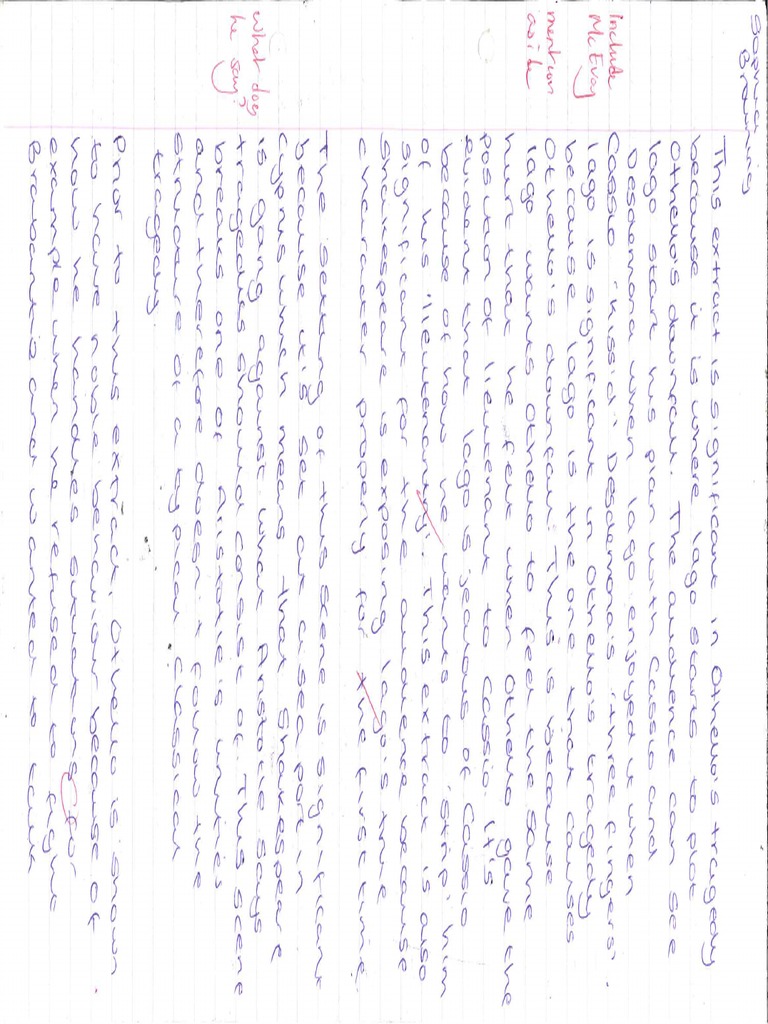 Sophie
Browning
This extract is significant in Othello's tragedy
because it is where Iago starts to plot
Othello's downfall. The audience can see
Iago start his plan with Cassio and
Desdemona when Iago enjoyed it when
Cassio 'kiss'd' Desdemona's 'three fingers'.
Iago is significant in Othello's tragedy
because Iago is the one that causes
Othello's downfall. This is because
Iago wants Othello to feel the same
hurt that he felt when Othello gave the
position of lieutenant to Cassio. It's
evident that Iago is jealous of Cassio
because of how he wants to 'strip' him
of his 'lieutenantry'. This extract is also
significant for the audience because
Shakespeare is exposing Iago's true
character properly for the first time.
Include
McEvoy
mention
aside
The setting of this scene is significant
because it's set at a sea port in
Cyprus which means that Shakespeare
is going against what Aristotle says
tragedies should consist of. This scene
breaks one of Aristotle's unities
and therefore doesn't follow the
structure of a typical classical
tragedy.
what does
he say?
Prior to this extract, Othello is shown
to have noble behaviour because of
how he handles situations for
example when he refused to fight
Brabantio and wanted to talk